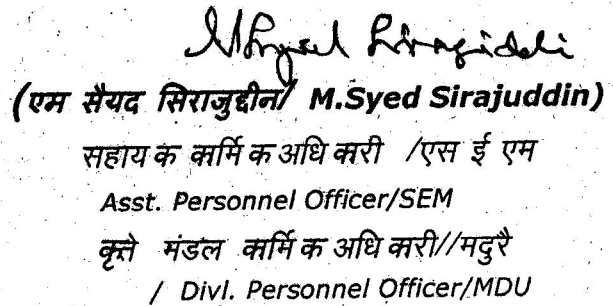 MSyed Sirajuddin
(एम सैयद सिराजुद्दीन/ M.Syed Sirajuddin)
सहाय क कार्मि क अधि कारी /एस ई एम
Asst. Personnel Officer/SEM
कृते मंडल कार्मि क अधि कारी//मदुरै
/ Divl. Personnel Officer/MDU